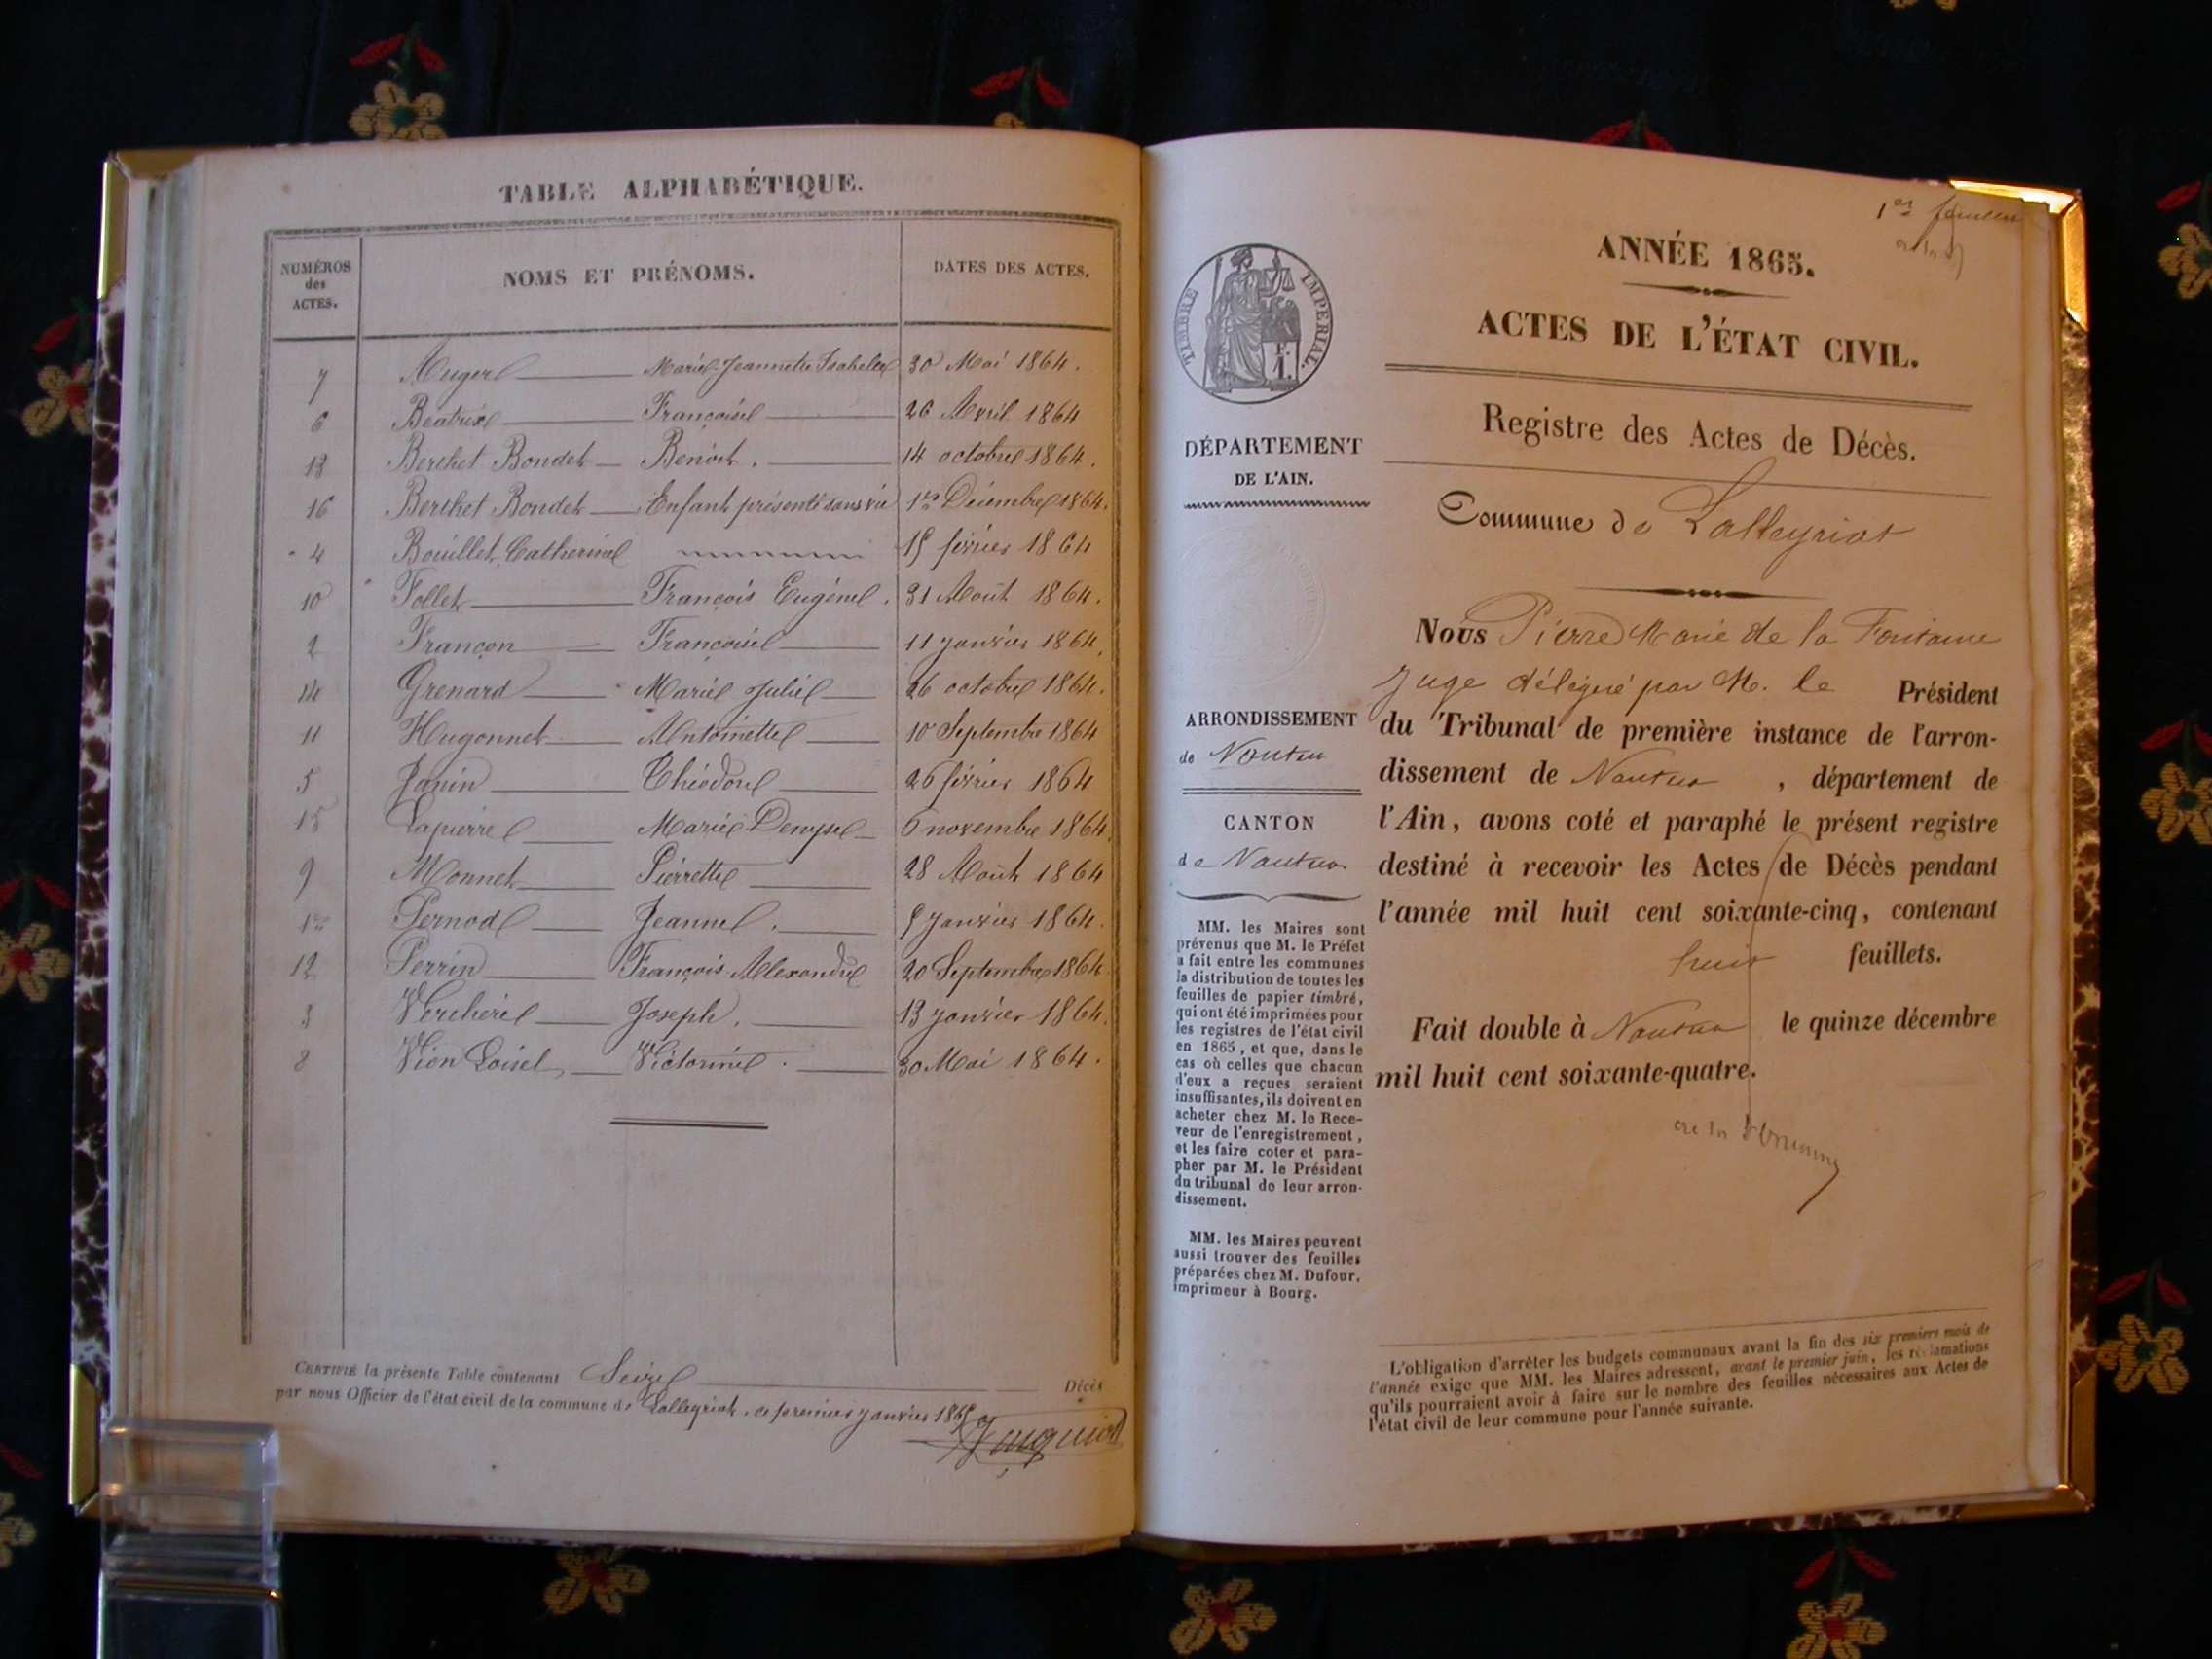 TABLE ALPHABÉTIQUE.
NUMÉROS des ACTES. NOMS ET PRÉNOMS. DATES DES ACTES.
7 Auger Marie Jeannette Isabelle 30 Mai 1864.
6 Béatrix Françoise 26 Avril 1864
13 Berthet Bondet Benoit. 14 octobre 1864.
16 Berthet Bondet Enfant présenté sans vie 1er Décembre 1864.
4 Bouillet, Catherine 15 février 1864
10 Follet François Eugène. 31 Août 1864.
2 Françon Françoise 11 janvier 1864.
14 Grenard Marie Julie 26 octobre 1864.
11 Hugonnet Antoinette 10 Septembre 1864
5 Janin Théodore 26 février 1864
15 Lapierre Marie Denyse 6 novembre 1864.
9 Monnet Pierrette 28 Août 1864
1er Pernod Jeanne. 5 janvier 1864.
12 Perrin François Alexandre 20 Septembre 1864.
3 Verchère Joseph. 13 janvier 1864.
8 Vion Loisel Victorine. 30 Mai 1864.
CERTIFIÉ la présente Table contenant Seize Décès
par nous Officier de l'état civil de la commune de Lalleyriat, ce premier janvier 1865
1er feuillet
ANNÉE 1865.
ACTES DE L'ÉTAT CIVIL.
Registre des Actes de Décès.
Commune de Lalleyriat
TIMBRE IMPERIAL.
1 f.
DÉPARTEMENT
DE L'AIN.
ARRONDISSEMENT
de Nantua
CANTON
de Nantua
MM. les Maires sont
prévenus que M. le Préfet
a fait entre les communes
la distribution de toutes les
feuilles de papier timbré,
qui ont été imprimées pour
les registres de l'état civil
en 1865, et que, dans le
cas où celles que chacun
d'eux a reçues seraient
insuffisantes, ils doivent en
acheter chez M. le Rece-
veur de l'enregistrement,
et les faire coter et para-
pher par M. le Président
du tribunal de leur arron-
dissement.
MM. les Maires peuvent
aussi trouver des feuilles
préparées chez M. Dufour,
imprimeur à Bourg.
Nous Pierre Marie de la Fontaine
Juge délégué par M. le Président
du Tribunal de première instance de l'arron-
dissement de Nantua, département de
l'Ain, avons coté et paraphé le présent registre
destiné à recevoir les Actes de Décès pendant
l'année mil huit cent soixante-cinq, contenant
huit feuillets.
Fait double à Nantua le quinze décembre
mil huit cent soixante-quatre.
L'obligation d'arrêter les budgets communaux avant la fin des six premiers mois de
l'année exige que MM. les Maires adressent, avant le premier juin, les réclamations
qu'ils pourraient avoir à faire sur le nombre des feuilles nécessaires aux Actes de
l'état civil de leur commune pour l'année suivante.